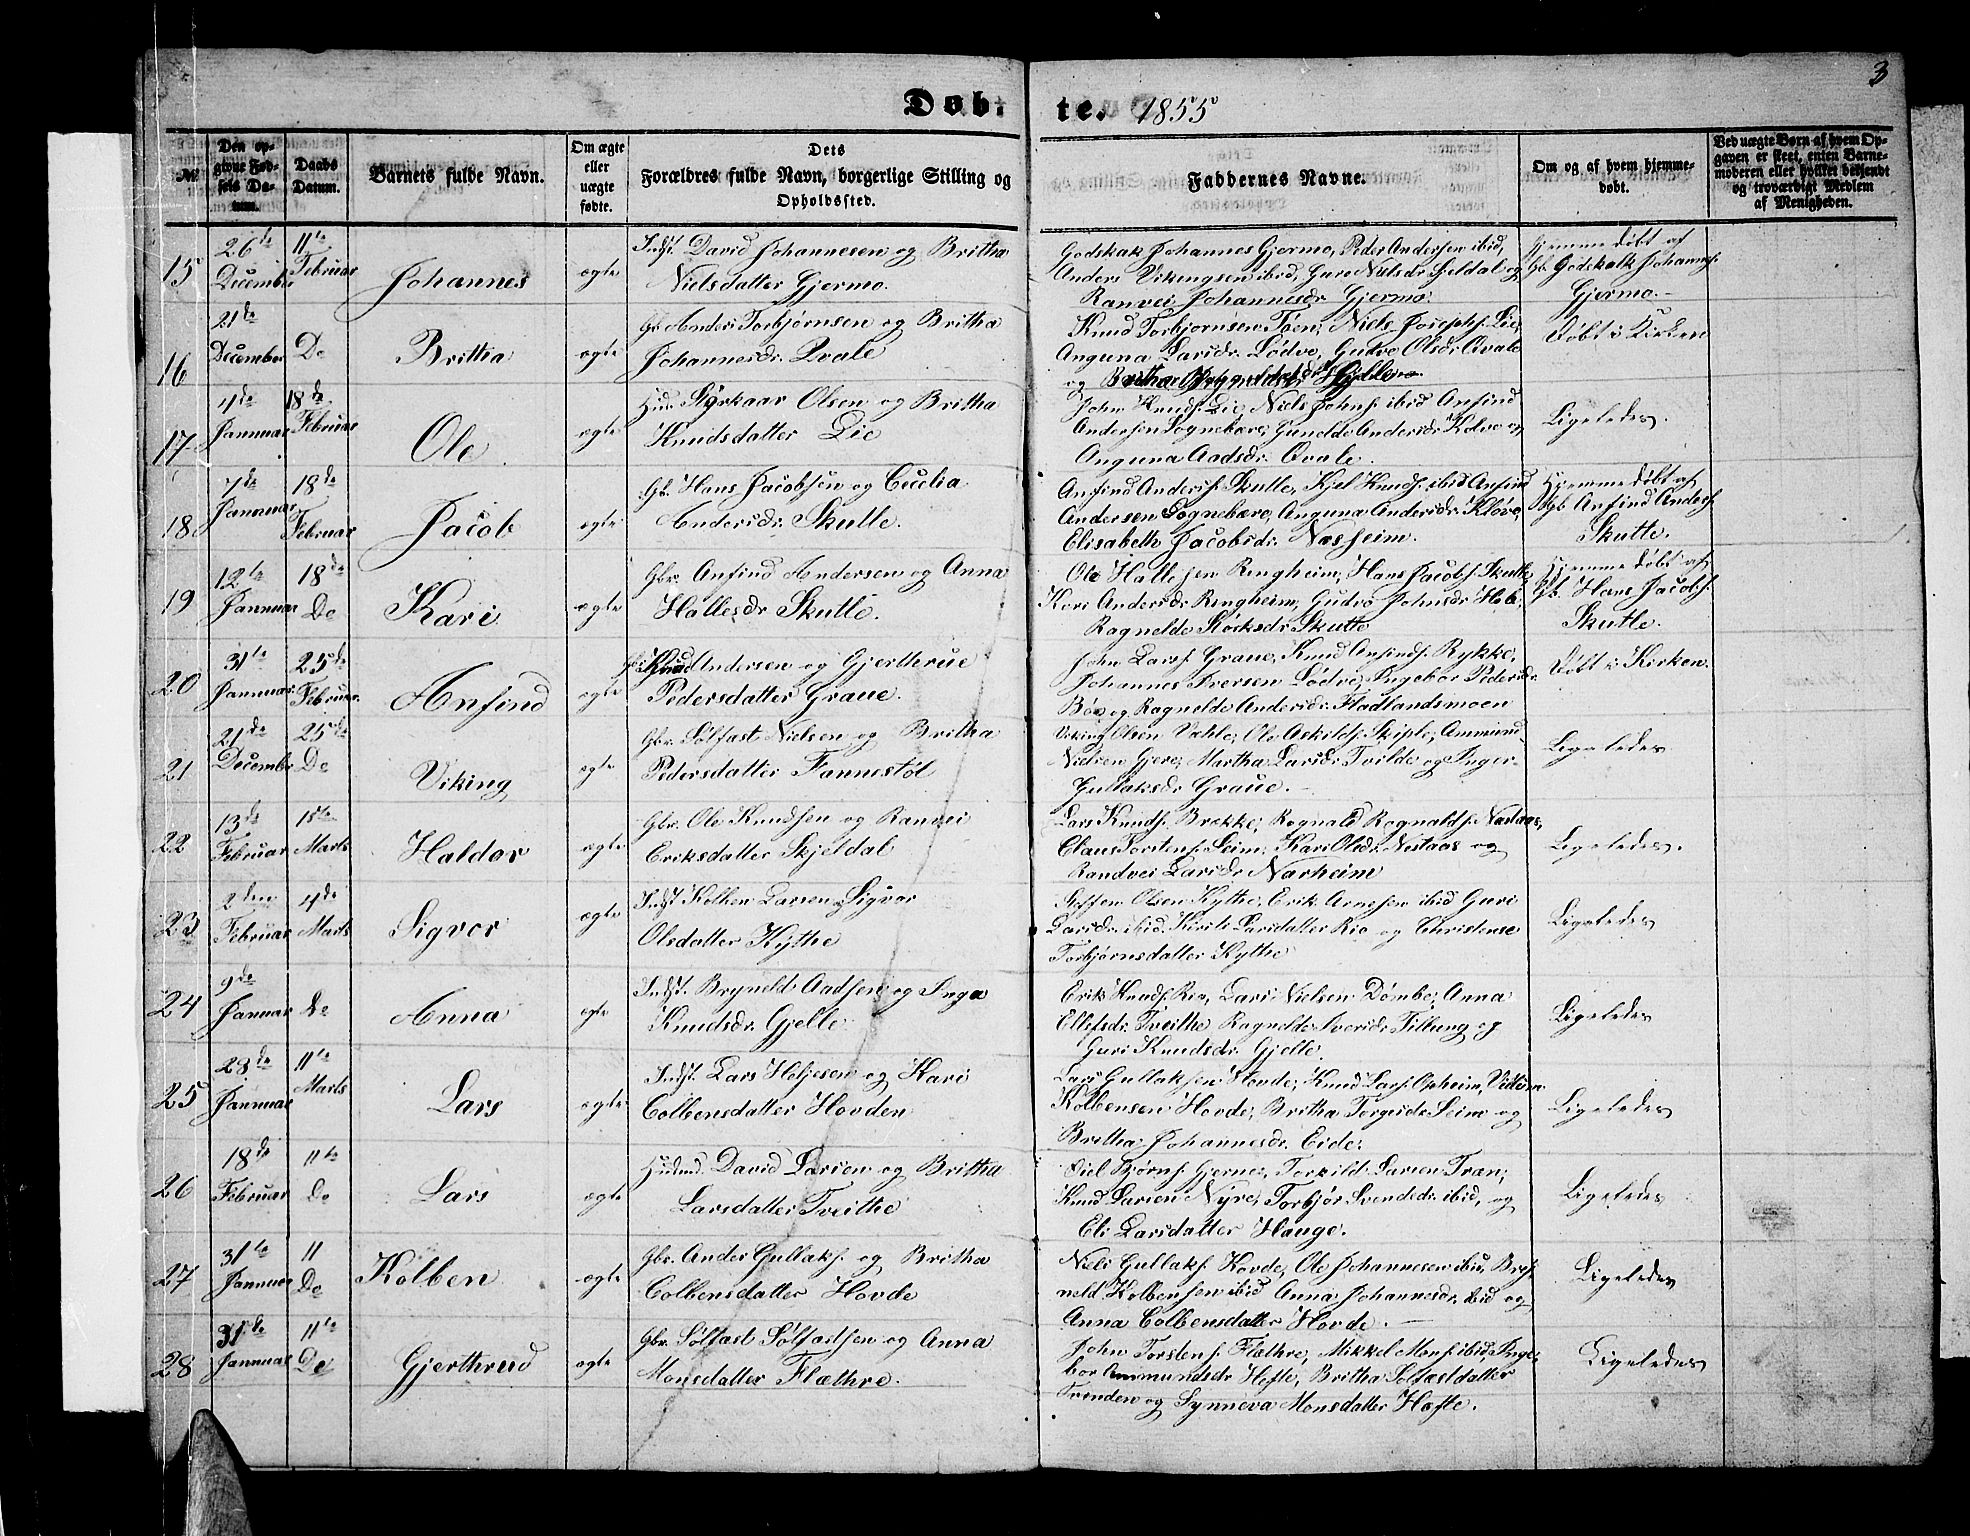 3
Døb- te. 1855
№
Den op-
givne Fød-
sels Da-
tum.
Daabs
Datum.
Barnets fulde Navn.
Om ægte
eller
uægte
fødte.
Dets
Forældres fulde Navn, borgerlige Stilling og
Opholdssted.
Faddernes Navne.
Om og af hvem hjemme-
døbt.
Ved uægte Børn af hvem Op-
gaven er skeet, enten Barne-
moderen eller hvilket vidende
og troværdigt Medlem
af Menigheden.
15
26de
December
11te
Februar
Johannes
ægte
Indst. David Johannesen og Britha
Nielsdatter Gjermo.
Godskak Johannes Gjermo, Peder Andersen ibid,
Anders Vikingsen ibid, Guro Nielsdr Seldal og
Ranvei Johannesdr. Gjermo.
Hjemmedøbt af
Gb. Godskalk Johannes.
Gjermo.-
16
21de
December
Do
Brittha
ægte
Gb Anders Torbjørnsen og Britha
Johannesdr. Qvale
Knud Torbjørnsen Tøen, Niels Josephs. Lie,
Anguna Larsdr. Lødve, Gudve Olsdr Qvale
og Britha Gjelle.
Døbt i Kirken
17
4de
Januar
18de
Februar
Ole.
ægte
Hus. Styrkaar Olsen og Britha
Knudsdatter Lie
John Knuds. Lie, Niels Johns. ibid Anfind
Andersen Sognebære, Gunelde Andersdr. Kolve og
Anguna Aadsdr. Qvale.
Ligeledes.
18
7de
Januar
18de
Februar
Jacob
ægte
Gbr. Hans Jacobsen og Cecelia
Andersdr. Skutle.
Anfind Anders. Skutle, Kjel Knuds. ibid Anfind
Andersen Sognebære, Anguna Andersdr. Kløve,
Elisabeth Jacobsdr. Næsheim.
Hjemmedøbt af
Gb Anfind Anders.
Skutle.
19
12te
Januar
18de
Do
Kari
ægte
Gbr. Anfind Andersen og Anna
Hallesdr Skutle.
Ole Hallesen Ringheim, Hans Jacobs. Skutle,
Kari Andersdr Ringheim, Gudve Johnsdr. Hæb,
Ragnelde Størksdr. Skutle
Hjemmedøbt af
Gb. Hans Jacobs.
Skutle.
20
31te
Januar.
25de
Februar.
Anfind
ægte
Knud Andersen og Gjertherue
Pedersdatter Graue.
John Lars. Graue, Knud Anfinds. Rykke,
Johannes Iversen Lødve, Ingebor Pedersdr.
Bøe og Ragnelde Andersdr. Fladlandsmoen
Døbt i Kirken.
21
21de
December
25de
Do
Viking
ægte
Gbr. Sølfast Nielsen og Britha
Pedersdatter Fannestøl
Viking Olsen Væhle, Ole Askilds. Skiple, Ammund
Nielsen Gjere, Martha Larsdr. Tvilde og Inger
Gullaksdr Graue.-
Ligeledes
22
13de
Februar
1ste
Marts
Haldor
ægte
Gbr. Ole Knudsen og Ranvei
Eriksdatter Skjeldal
Lars Knuds. Brekke, Rognald Rognalds. Næstaas,
Claus Torstens. Seim, Kari Olsdr. Nestaas og
Randvei Larsdr. Nærheim
Ligeledes.
23
2den
Februar
4de
Marts
Sigvor
ægte
Indst Kolben Larsen og Sigvor
Olsdatter Kythe
Steffen Olsen Kythe, Erik Arnesen ibid Guri
Larsdr. ibid. Kirsti Larsdatter Rio og Christense
Torbjørnsdatter Kythe
Ligeledes
24
9de
Januar
Do
Anna
ægte
Indst. Bryneld Aadsen og Inga
Knudsdr. Gjelle.
Erik Knuds. Rio, Lars Nielsen Dømbe, Anna
Ellefsdr. Tveithe Ragnelde Iversdr. Tillung og
Guri Knudsdr. Gjelle.
Ligeledes
25
28de
Januar
11te
Marts
Lars
ægte
Indst. Lars Heljesen og Kari
Colbensdatter Hovden
Lars Gullaksen Hovde, Knud Lars. Opheim,
Kolbensen Hovde, Britha Torgersdr Seim og
Britha Johannesdr. Eide.
Ligeledes
26
18de
Februar
11te
Do
Lars
ægte
David Larsen og Brittha
Larsdatter Tveithe
Bjørns. Gjerne, Torkild Larsen Træn,
Knud Larsen Nyre, Torbjør Svendsdr. ibid, og
Eli Larsdatter Hauge.
Ligeledes
27
31te
Januar
11
Do
Kolben
ægte
Gbr. Anders Gullaks. og Britha
Colbensdatter Hovde
Niels Gullaks. Hovde, Ole Johannesen ibid, Bry-
neld Kolbensen ibid Anna Johannesdr. ibid og
Anna Colbensdatter Hovde.-
Ligeledes
28
31te
Januar
11te
Do
Gjerthrud
ægte
Gbr. Sølfast Sølfastsen og Anna
Monsdatter Flæthre.
John Torstens. Flæthre, Mikkel Mons. ibid, Inge-
bor Ammundsdr Hefte, Britha Solfæstdatter
Trenden og Synneva Monsdatter Hæfte.
Ligeledes